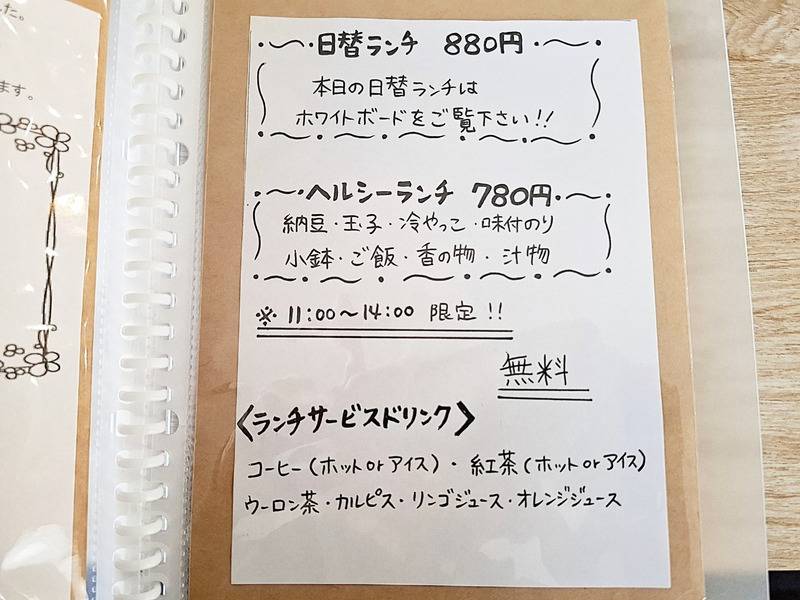 た。
ます。
日替ランチ 880円
本日の日替ランチは
ホワイトボードをご覧下さい!!
ヘルシーランチ 780円
納豆・玉子・冷やっこ・味付のり
小鉢・ご飯・香の物・汁物
※ 11:00~14:00 限定!!
無料
<ランチサービスドリンク>
コーヒー(ホット or アイス)・紅茶(ホット or アイス)
ウーロン茶・カルピス・リンゴジュース・オレンジジュース